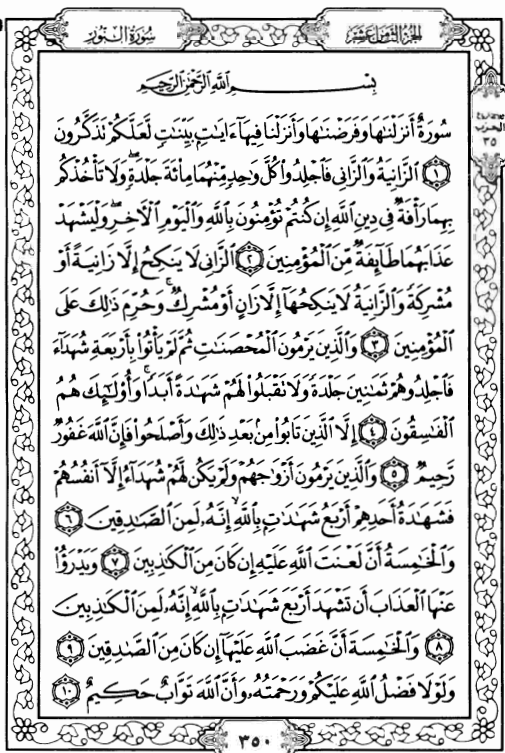 سُورَةُ النُّورِ
الجُزْءُ الثَّامِنَ عَشَرَ
الحزب
٣٥
بِسْمِ اللَّهِ الرَّحْمَٰنِ الرَّحِيمِ
سُورَةٌ أَنزَلْنَٰهَا وَفَرَضْنَٰهَا وَأَنزَلْنَا فِيهَآ ءَايَٰتٍۭ بَيِّنَٰتٍ لَّعَلَّكُمْ تَذَكَّرُونَ
﴿١﴾ الزَّانِيَةُ وَالزَّانِى فَاجْلِدُوا۟ كُلَّ وَٰحِدٍ مِّنْهُمَا مِا۟ئَةَ جَلْدَةٍ ۖ وَلَا تَأْخُذْكُم
بِهِمَا رَأْفَةٌ فِى دِينِ اللَّهِ إِن كُنتُمْ تُؤْمِنُونَ بِاللَّهِ وَالْيَوْمِ الْءَاخِرِ ۖ وَلْيَشْهَدْ
عَذَابَهُمَا طَآئِفَةٌ مِّنَ الْمُؤْمِنِينَ ﴿٢﴾ الزَّانِى لَا يَنكِحُ إِلَّا زَانِيَةً أَوْ
مُشْرِكَةً وَالزَّانِيَةُ لَا يَنكِحُهَآ إِلَّا زَانٍ أَوْ مُشْرِكٌ ۚ وَحُرِّمَ ذَٰلِكَ عَلَى
الْمُؤْمِنِينَ ﴿٣﴾ وَالَّذِينَ يَرْمُونَ الْمُحْصَنَٰتِ ثُمَّ لَمْ يَأْتُوا۟ بِأَرْبَعَةِ شُهَدَآءَ
فَاجْلِدُوهُمْ ثَمَٰنِينَ جَلْدَةً وَلَا تَقْبَلُوا۟ لَهُمْ شَهَٰدَةً أَبَدًا ۚ وَأُو۟لَٰٓئِكَ هُمُ
الْفَٰسِقُونَ ﴿٤﴾ إِلَّا الَّذِينَ تَابُوا۟ مِنۢ بَعْدِ ذَٰلِكَ وَأَصْلَحُوا۟ فَإِنَّ اللَّهَ غَفُورٌ
رَّحِيمٌ ﴿٥﴾ وَالَّذِينَ يَرْمُونَ أَزْوَٰجَهُمْ وَلَمْ يَكُن لَّهُمْ شُهَدَآءُ إِلَّآ أَنفُسُهُمْ
فَشَهَٰدَةُ أَحَدِهِمْ أَرْبَعُ شَهَٰدَٰتٍۭ بِاللَّهِ ۙ إِنَّهُۥ لَمِنَ الصَّٰدِقِينَ ﴿٦﴾
وَالْخَٰمِسَةُ أَنَّ لَعْنَتَ اللَّهِ عَلَيْهِ إِن كَانَ مِنَ الْكَٰذِبِينَ ﴿٧﴾ وَيَدْرَؤُا۟
عَنْهَا الْعَذَابَ أَن تَشْهَدَ أَرْبَعَ شَهَٰدَٰتٍۭ بِاللَّهِ ۙ إِنَّهُۥ لَمِنَ الْكَٰذِبِينَ
﴿٨﴾ وَالْخَٰمِسَةَ أَنَّ غَضَبَ اللَّهِ عَلَيْهَآ إِن كَانَ مِنَ الصَّٰدِقِينَ ﴿٩﴾
وَلَوْلَا فَضْلُ اللَّهِ عَلَيْكُمْ وَرَحْمَتُهُۥ وَأَنَّ اللَّهَ تَوَّابٌ حَكِيمٌ ﴿١٠﴾
٣٥٠